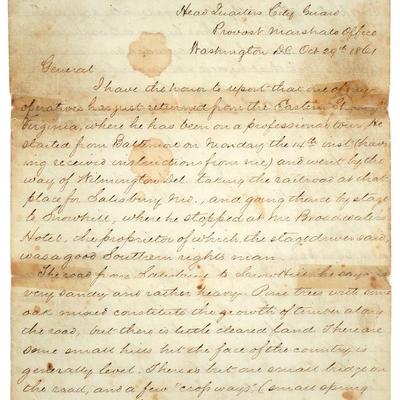 Head Quarters City Guard
Provost Marshals Office
Washington D.C. Oct 29th 1861
General
I have the honor to report that one of my
operatives has just returned from the Eastern Shore
Virginia, where he has been on a professional tour. He
started from Baltimore on Monday the 14th inst (hav-
ing received instructions from me) and went by the
way of Wilmington Del. taking the railroad at that
place for Salisbury Md., and going thence by stage
to Snowhill, where he stopped at Mr Broadwater
Hotel, the proprietor of which, the stagedriver said,
was a good Southern rights man.
The road from Salisbury to Snow Hill he says is
very sandy and rather heavy. Pine trees with some
oak mixed constitute the growth of timber along
the road, but there is little cleared land. There are
some small hills but the face of the country is
generally level. There is but one small bridge on
the road, and a few "crop ways" (small spring